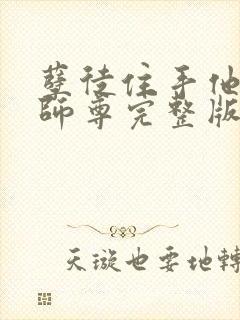 孽徒住手他
師尊完整版
天璇也要地轉